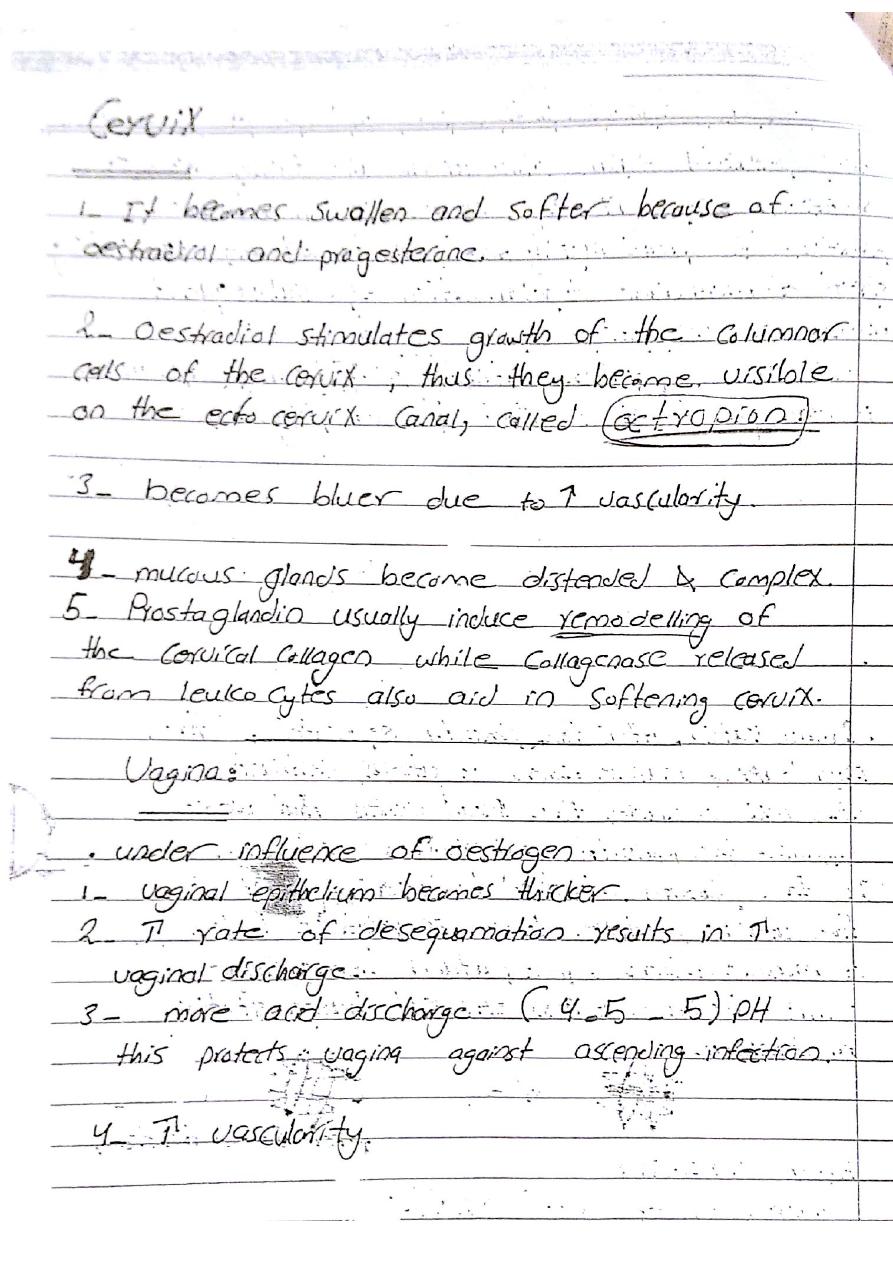 Cervix
1- It becomes swollen and softer because of
oestradiol and progesterone.
2- Oestradiol stimulates growth of the columnar
cells of the cervix, thus they become visible
on the ecto cervix canal, called ectropion.
3- becomes bluer due to ↑ vascularity.
4- mucous glands become distended & complex.
5- Prostaglandin usually induce remodelling of
the cervical collagen while collagenase released
from leukocytes also aid in softening cervix.
Vagina:
• under influence of oestrogen
1- vaginal epithelium becomes thicker.
2- ⇑ rate of desequamation results in ⇑
vaginal discharge.
3- more acid discharge (4.5 - 5) pH
this protects vagina against ascending infection.
4- ⇑ vascularity.